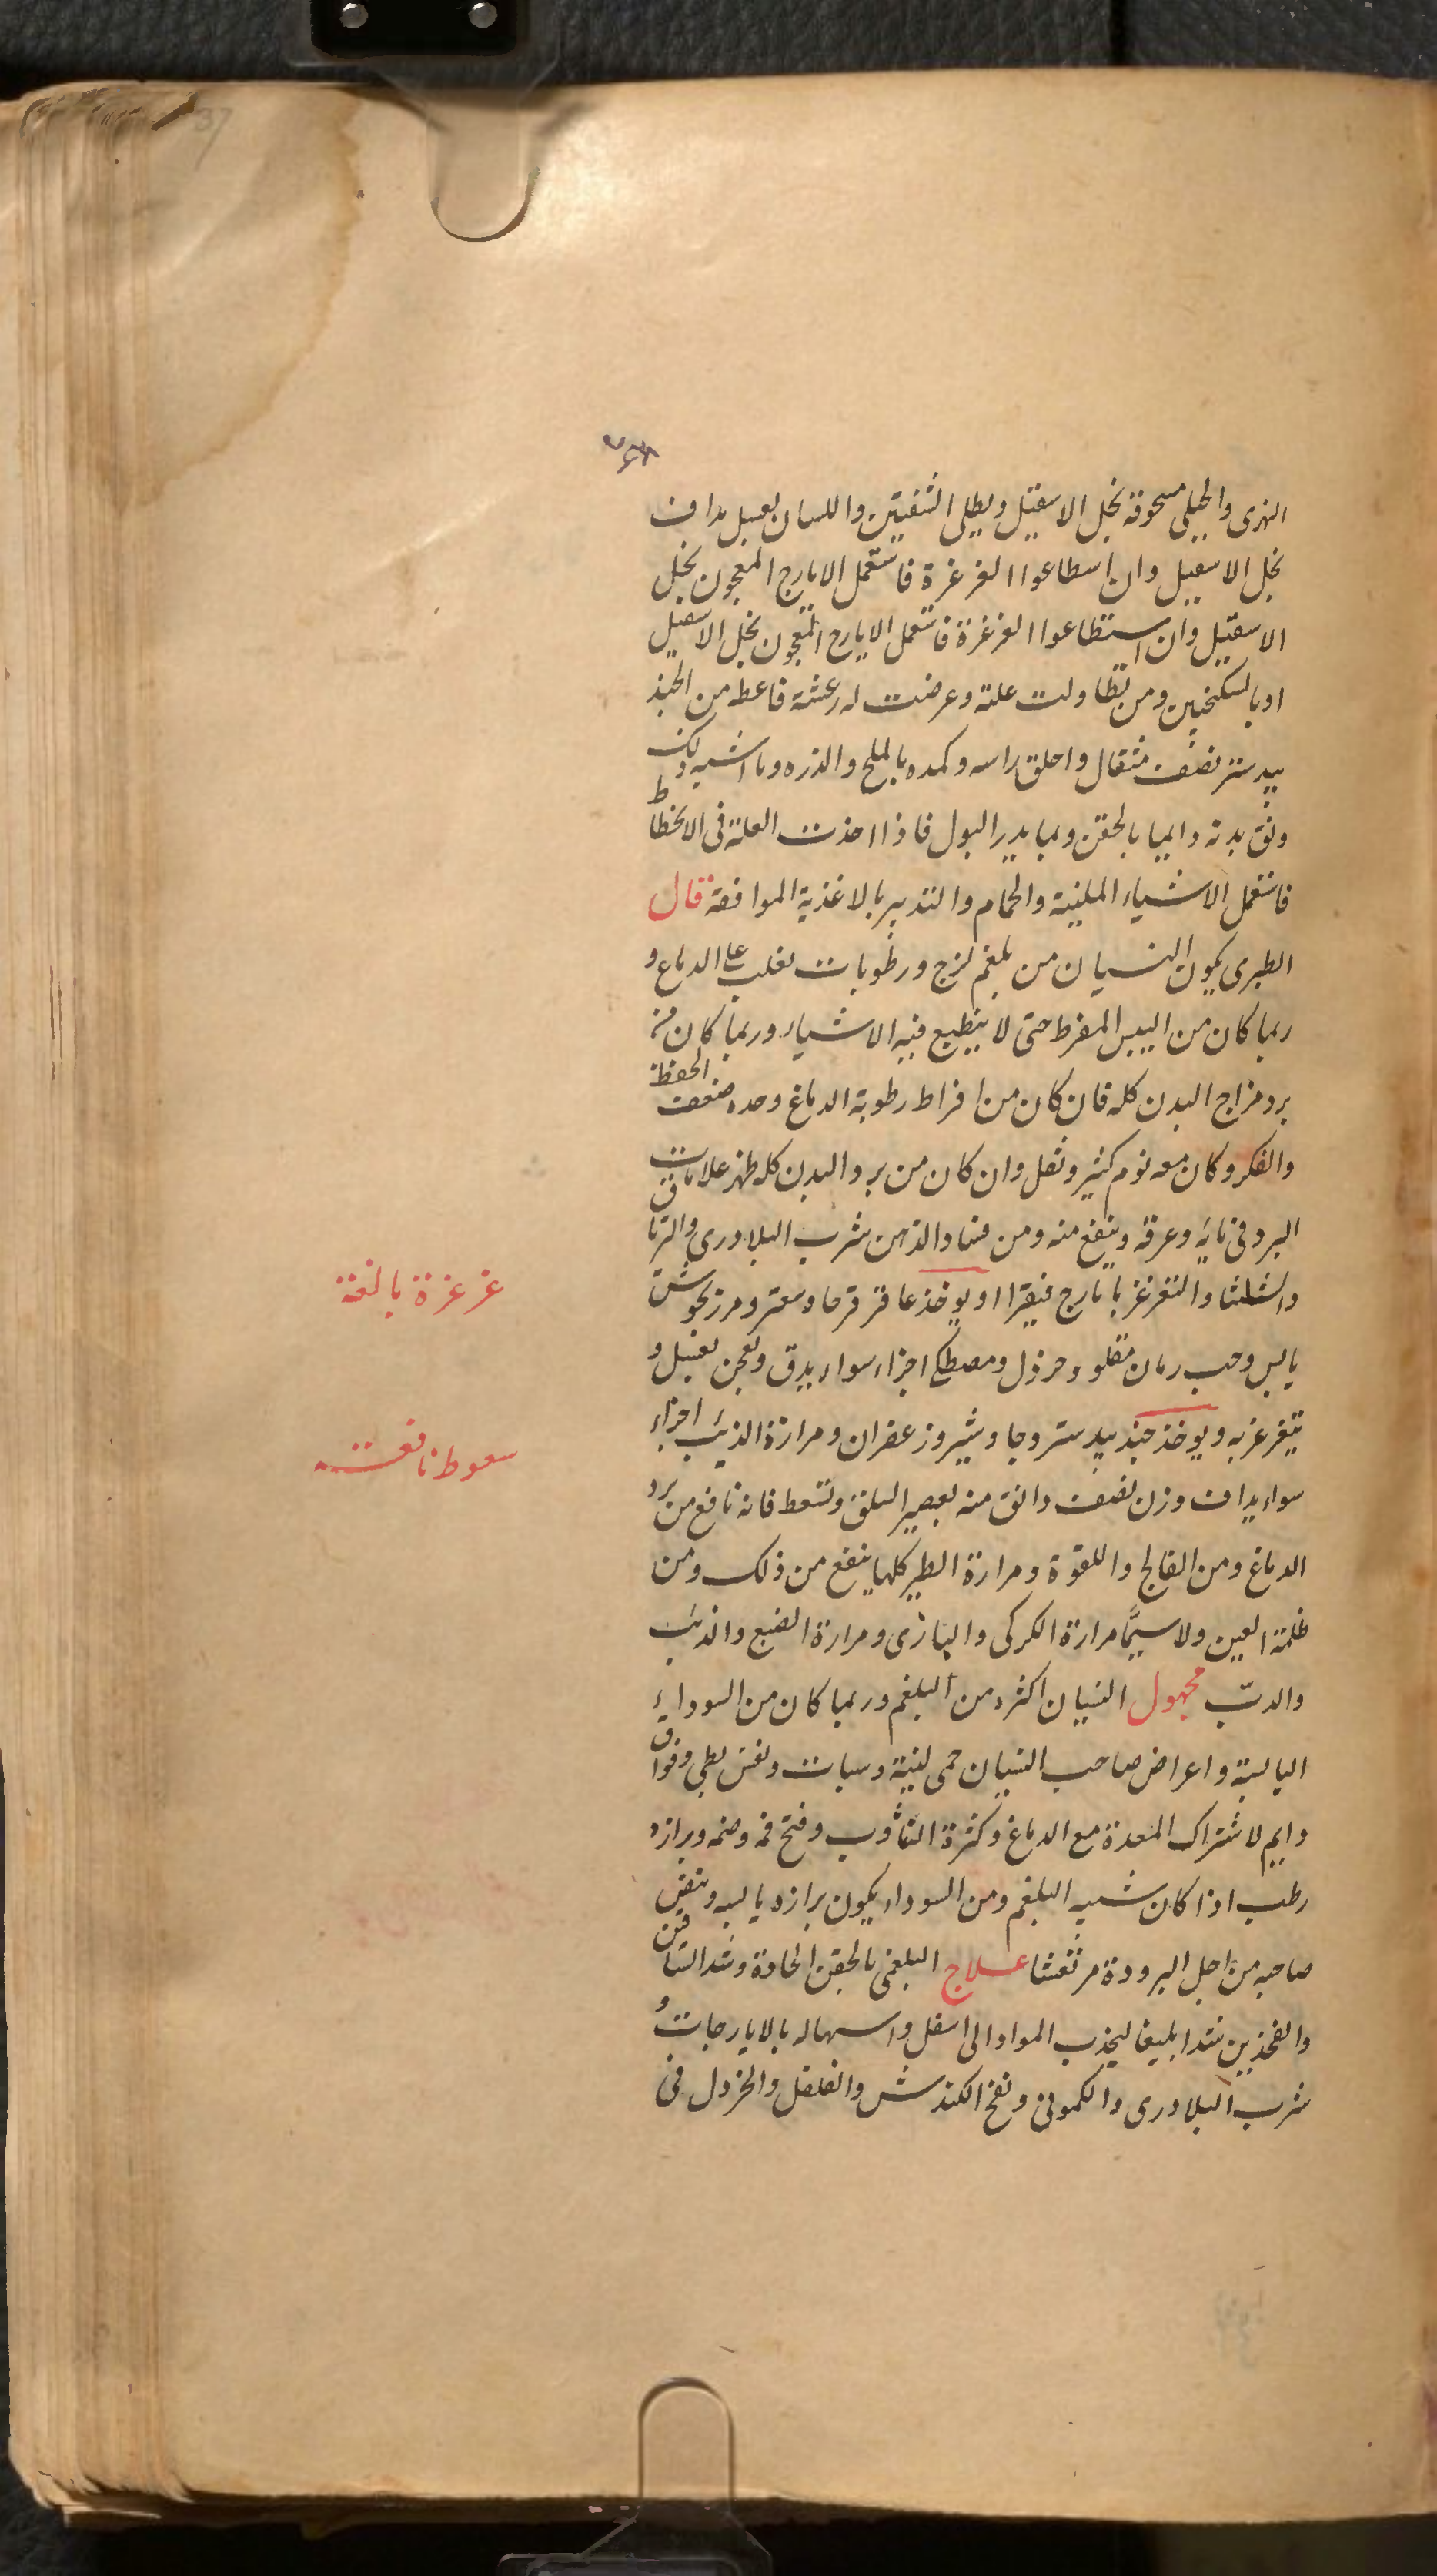 37
النهرى والجبلى مسحوقة بخل الاسقيل ويطلى الشفتين واللسان بعسل مداف
بخل الاسقيل وان اسطاعوا الغرغرة فاستعمل الايارج المعجون بخل
الاسقيل وان استطاعوا الغرغرة فاستعمل الايارج المعجون بخل الاسقيل
او بالسكنجبين ومن تطاولت علته وعرضت له رعشة فاعطه من الجند
بيدستر نصف مثقال واحلق راسه وكمده بالملح والذره وما اشبه ذلك
ونق بدنه دايما بالحقن وبما يدر البول فاذا اخذت العلة فى الانحطاط
فاستعمل الاشياء الملينة والحمام والتدبير بالاغذية الموافقة قال
الطبرى يكون النسيان من بلغم لزج ورطوبات تغلب على الدماغ و
ربما كان من اليبس المفرط حتى لا ينطبع فيه الاشياء وربما كان من
برد مزاج البدن كله فان كان من افراط رطوبة الدماغ وحده ضعف الحفظ
والفكر وكان معه نوم كثير وثقل وان كان من برد البدن كله ظهر علامات
البرد فى مايه وعرقه وينفع منه ومن فساد الذهن شرب البلادرى والترياق
والشلثا والتغرغر بايارج فيقرا او يوخذ عاقر قرحا وسعتر ومرزنجوش
يابس وحب رمان مقلو وخردل ومصطكى اجزاء سواء يدق ويعجن بعسل و
يتغرغر به ويوخذ جندبيدستر وجاوشير وزعفران ومرارة الذيب اجزاء
سواء يداف وزن نصف دانق منه بعصير السلق وتسعط فانه نافع من برد
الدماغ ومن الفالج واللقوة ومرارة الطير كلها ينفع من ذلك ومن
ظلمة العين ولا سيما مرارة الكركى والبازى ومرارة الضبع والذئب
والدب مجهول النسيان اكثره من البلغم وربما كان من السوداء
اليابسة واعراض صاحب النسيان حمى لينة وسبات ونفس بطى وفواق
دايم لاشتراك المعدة مع الدماغ وكثرة التثاوب وفتح فمه وضمه وبرازه
رطب اذا كان سببه البلغم ومن السوداء يكون برازه يابسه وينفض
صاحبه من اجل البرودة مرتعشا علاج البلغمى بالحقن الحادة وشد الساقين
والفخذين شدا بليغا ليجذب المواد الى اسفل واسهاله بالايارجات و
شرب البلادرى والكمونى ونفخ الكندش والفلفل والخردل فى
غرغرة بالغة
سعوط نافعة